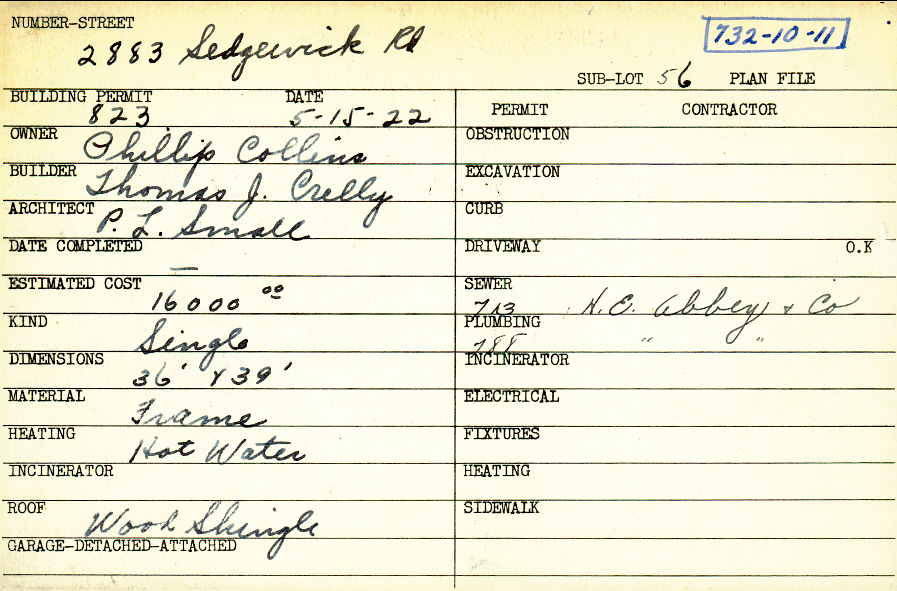 NUMBER-STREET
2883 Sedgewick Rd
732-10-11
SUB-LOT 56 PLAN FILE
BUILDING PERMIT DATE
823 5-15-22
PERMIT CONTRACTOR
OWNER Phillip Collins
OBSTRUCTION
BUILDER Thomas J. Crelly
EXCAVATION
ARCHITECT P. L. Small
CURB
DATE COMPLETED —
DRIVEWAY O.K
ESTIMATED COST 16000 00
SEWER 713 H. E. Abbey & Co
KIND Single
PLUMBING 788 " "
DIMENSIONS 36' x 39'
INCINERATOR
MATERIAL Frame
ELECTRICAL
HEATING Hot Water
FIXTURES
INCINERATOR
HEATING
ROOF Wood Shingle
SIDEWALK
GARAGE-DETACHED-ATTACHED